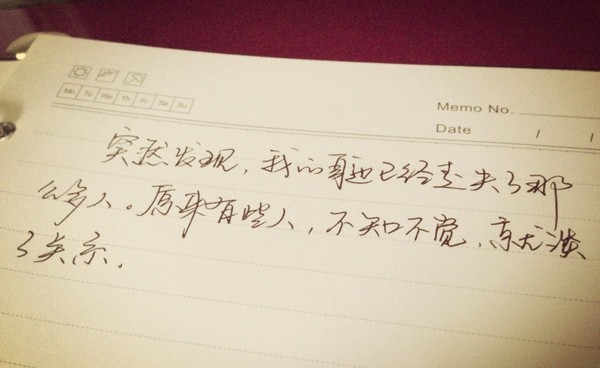 Mo Tu We Th Fr Sa Su
Memo No.
Date / /
突然发现，我的身边已经走失了那
么多人。原来有些人，不知不觉，就淡
了关系.